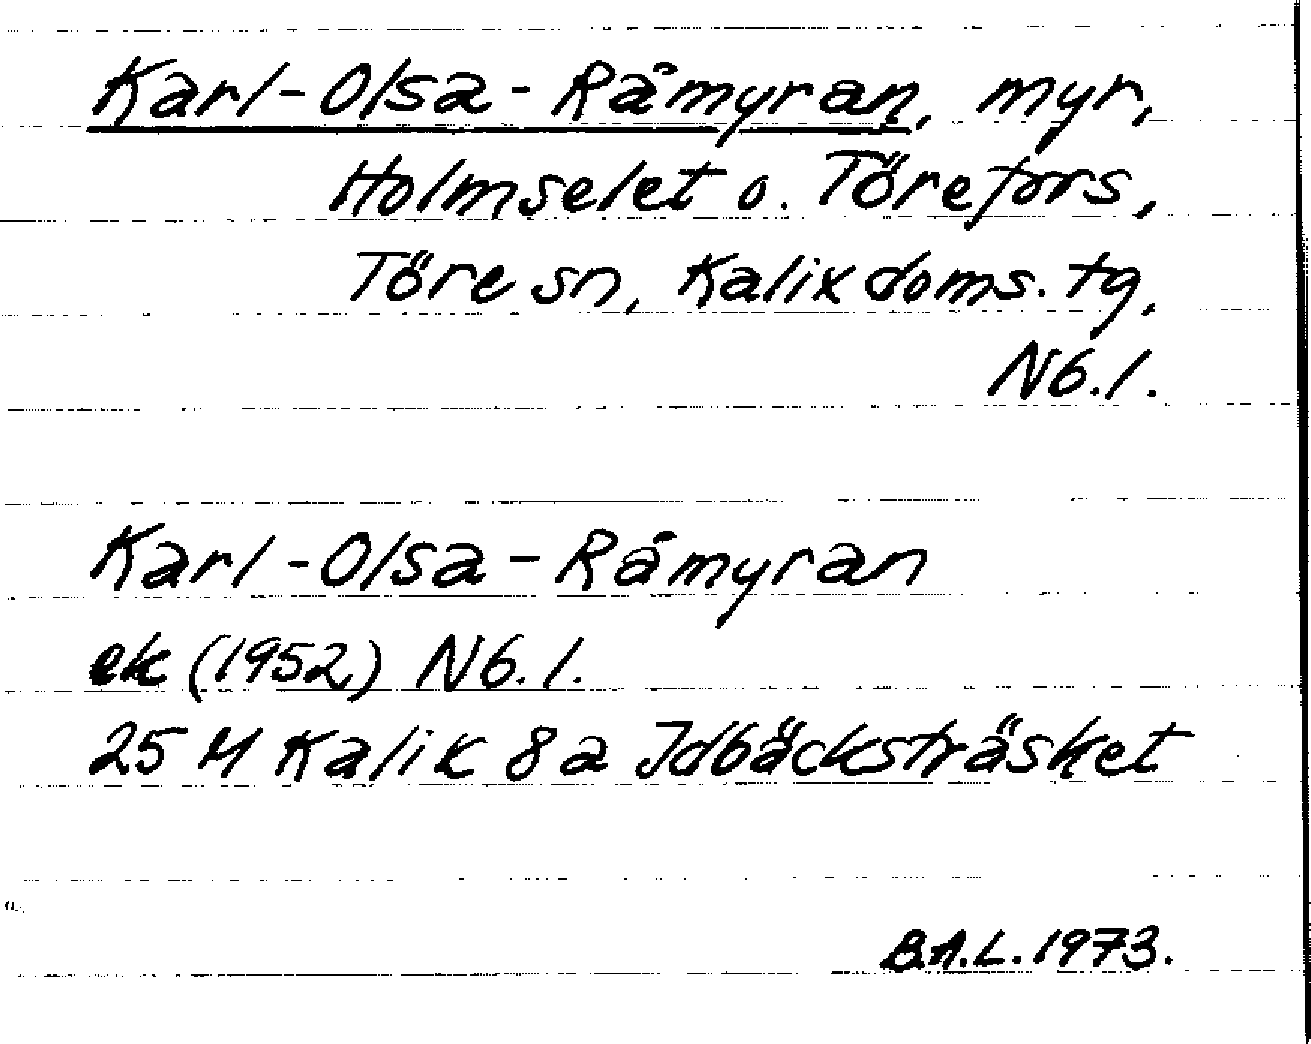 Karl-Olsa-Råmyran, myr,
Holmselet o. Törefors,
Töre sn, Kalix doms. tg,
Nb. l.
Karl-Olsa-Råmyran
ek (1952) Nb. l.
25 M Kalix 8a Idbäcksträsket
B.A.L. 1973.